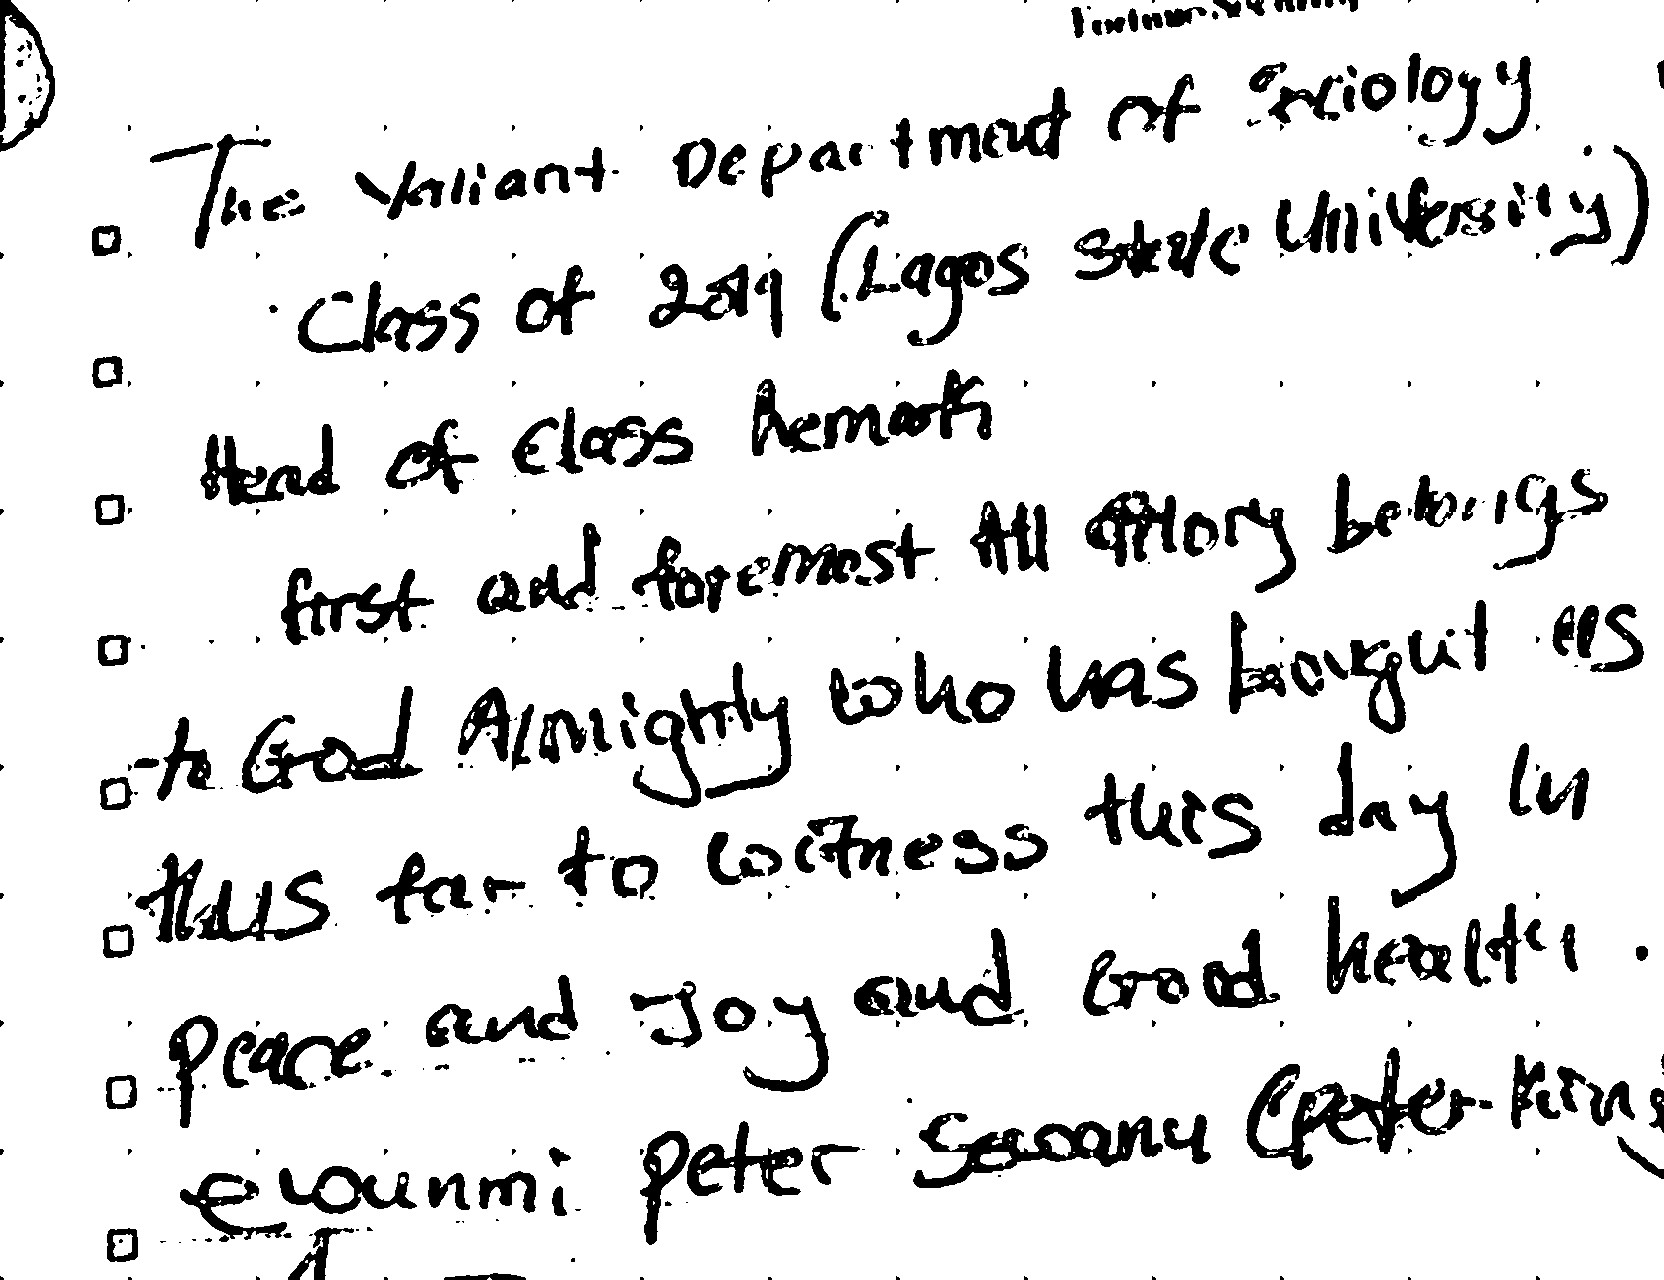 The Valiant Department of Sociology
Class of 2019 (Lagos State University)
Head of Class Remark
first and foremost All Glory belongs
to God Almighty who has bought us
thus far to witness this day in
peace and Joy and Good health.
ewunmi Peter Sewanu (Peter-King